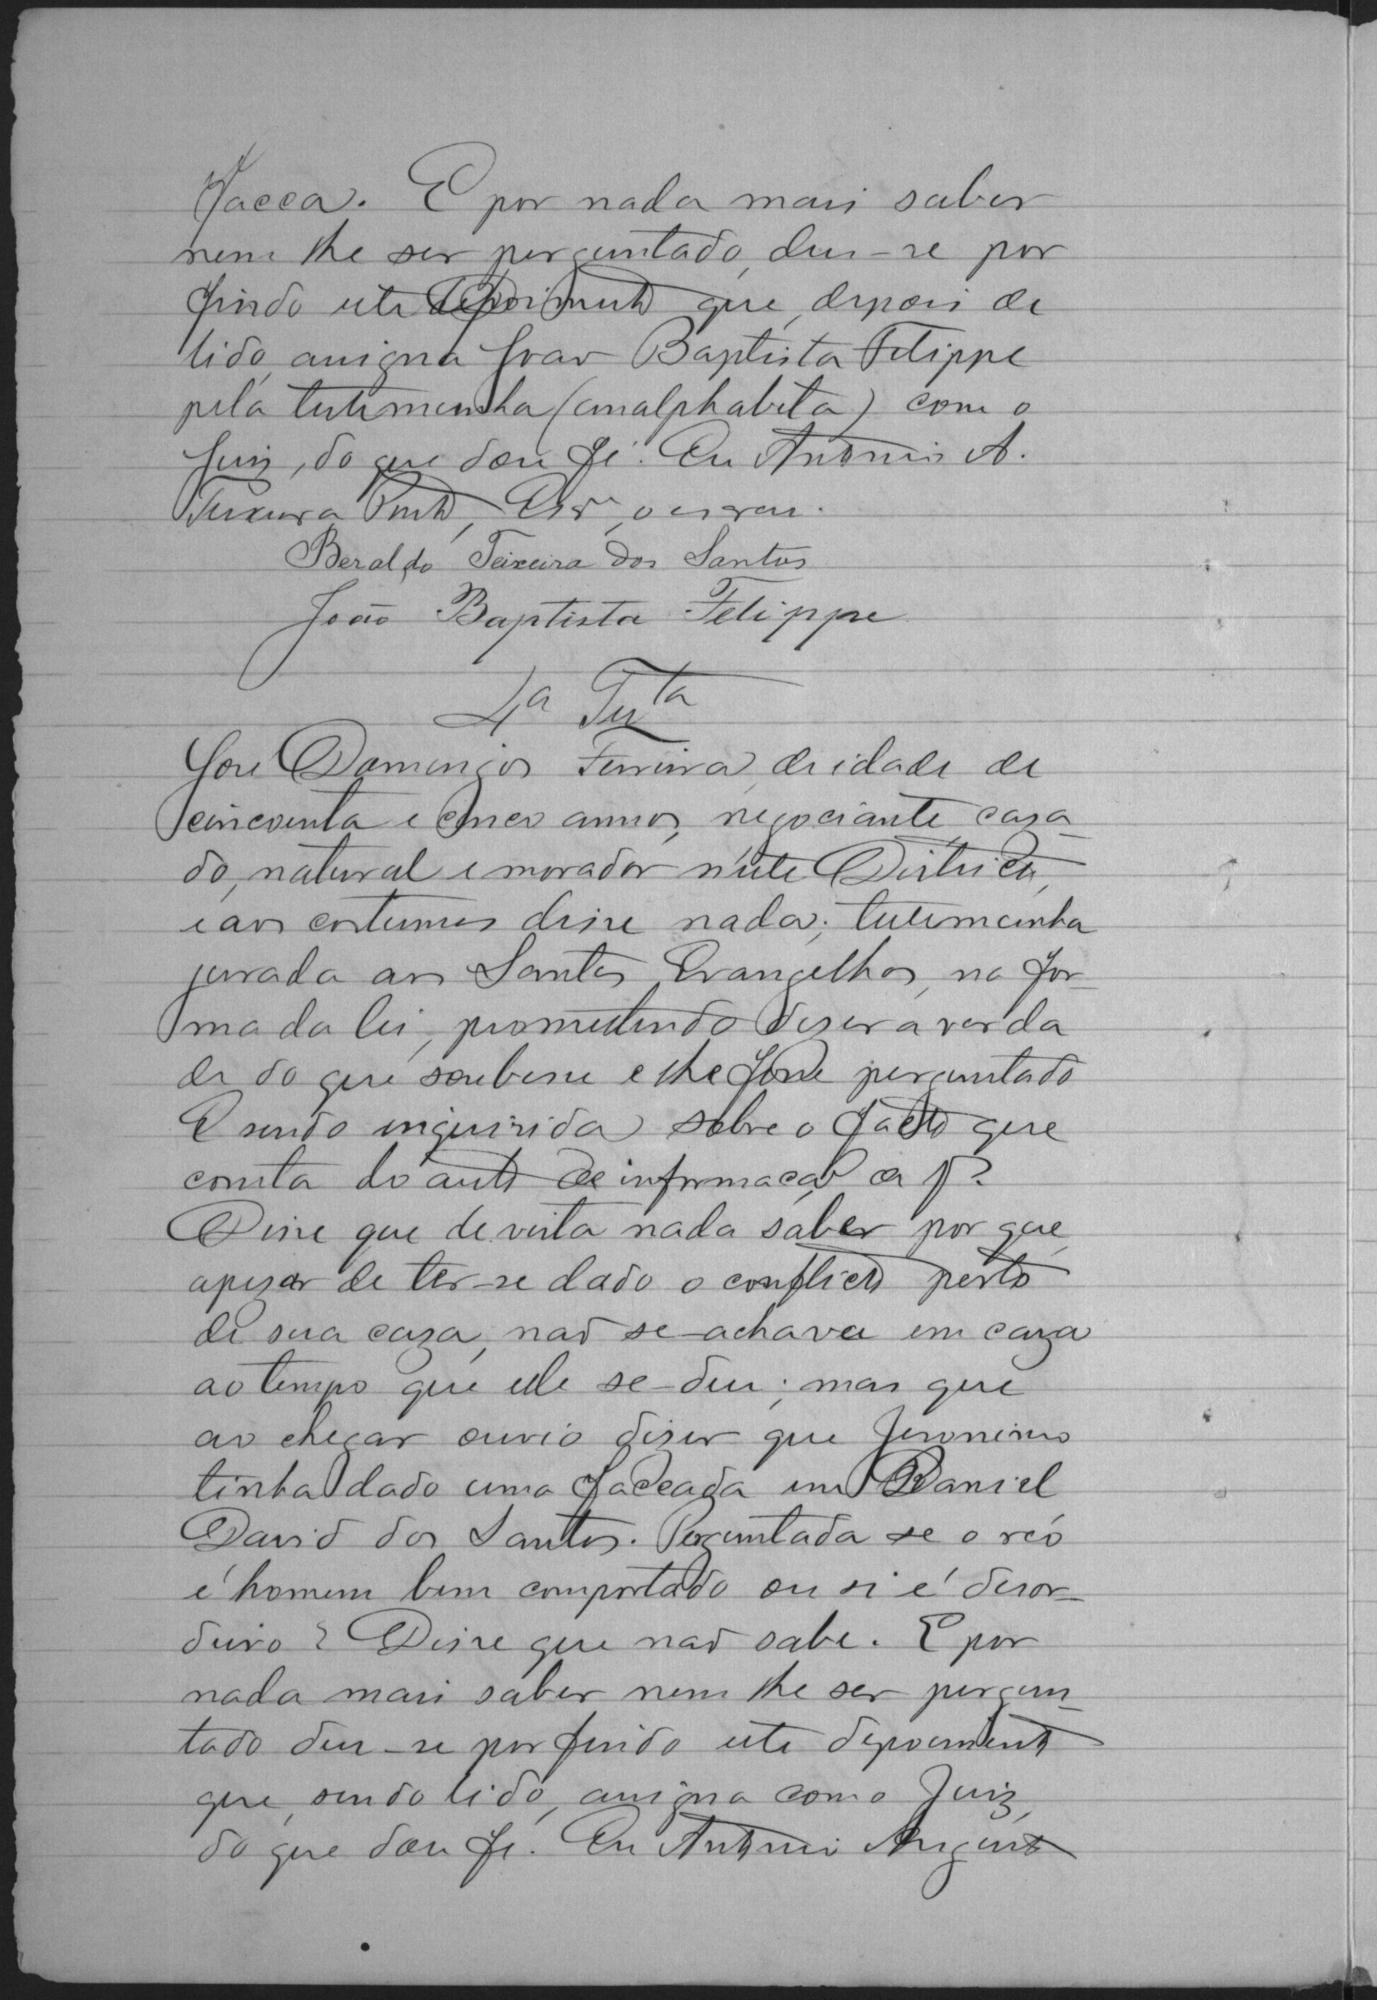 facca. E por nada mais saber
nem lhe ser perguntado, deu-se por
findo este depoimento que, depois de
lido, assigna João Baptista Felippe
pela testemunha (analphabeta) com o
Juiz, do que dou fé. Eu Antonio A.
Teixeira Pinto, Escrm, o escrevi.
Beraldo Teixeira dos Santos
João Baptista Felippe
4ª Testa
José Domingos Ferreira, de idade de
cincoenta e cinco annos, negociante, caza-
do, natural e morador n'este Districto,
e aos costumes disse nada; testemunha
jurada aos Santos Evangelhos, na for-
ma da lei, promettendo dizer a verda
de do que soubesse e lhe fosse perguntado
E sendo inquirida sobre o facto que
consta do auto de informação de f?
Disse que de vista nada saber por que,
apezar de ter-se dado o conflicto perto
de sua caza, não se-achava em caza
ao tempo que elle se-deu; mas que
ao chegar ouvio dizer que Jeronimo
tinha dado uma faccada em Daniel
David dos Santos. Perguntada se o réo
é homem bem comportado ou si é desor-
deiro? Disse que não sabe. E por
nada mais saber nem lhe ser pergun-
tado deu-se por findo este depoimento
que, sendo lido, assigna com o Juiz,
do que dou fé. Eu Antonio Augusto